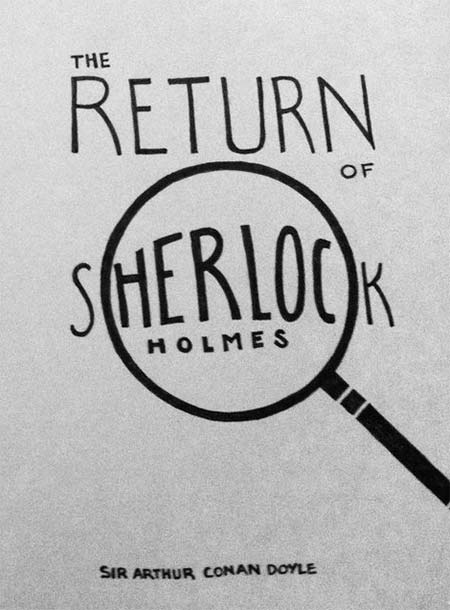 THE
RETURN
OF
SHERLOCK
HOLMES
SIR ARTHUR CONAN DOYLE